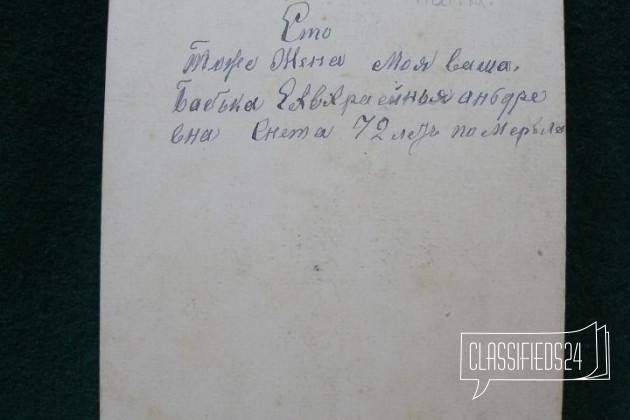 Ето
Тоже Жена Моя ваша.
Бабька Евврасинья андре
вна Снета 72 летъ померьла
CLASSIFIEDS24